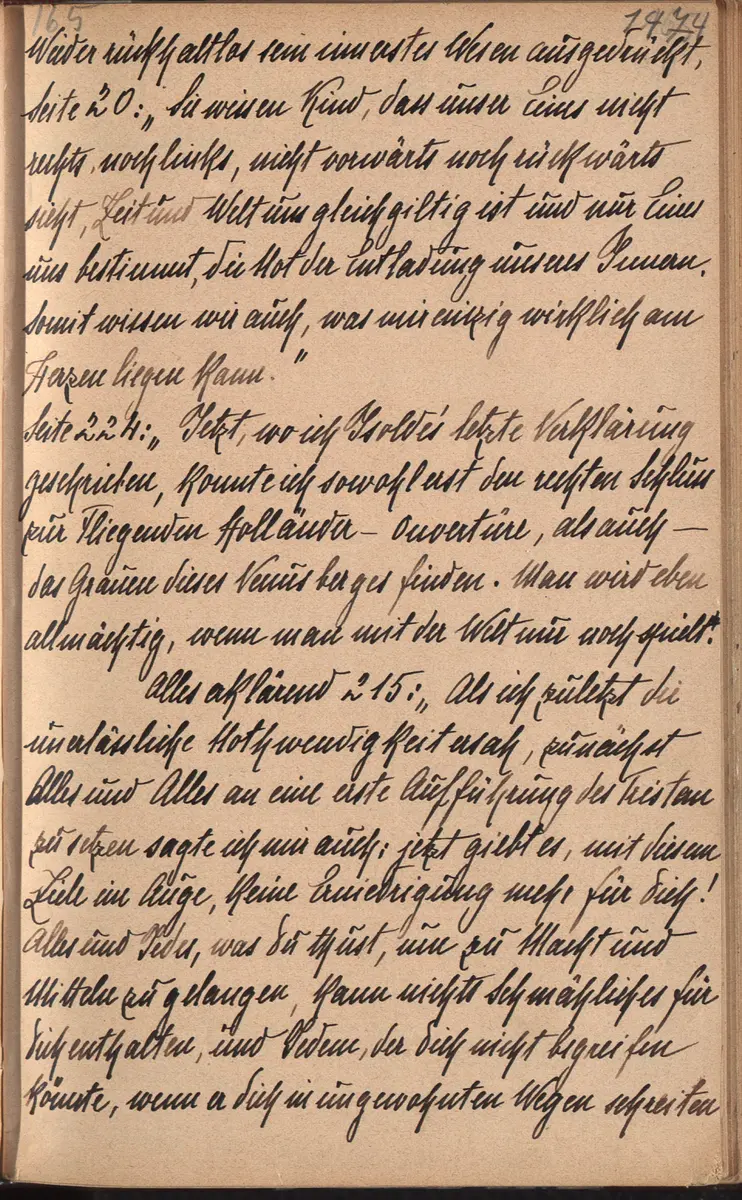 165
1474
Wieder rückhaltlos sein innerstes Wesen ausgedrückt,
Seite 20: „Sie wissen Kind, dass unser Eins nicht
rechts, noch links, nicht vorwärts noch rückwärts
sieht, Zeit und Welt uns gleichgiltig ist und nur Eines
uns bestimmt, die Not der Entladung unseres Innern.
Somit wissen wir auch, was mir einzig wirklich am
Herzen liegen kann."
Seite 224: „Jetzt, wo ich Isolde's letzte Verklärung
geschrieben, konnte ich sowohl erst den rechten Schluss
zur Fliegenden Holländer – Ouvertüre, als auch –
das Grauen dieses Venusberges finden. Man wird eben
allmächtig, wenn man mit der Welt nur noch spielt."
Alles erklärend 215: „Als ich zuletzt die
unerlässliche Nothwendigkeit ersah, zunächst
Alles und Alles an eine erste Aufführung des Tristan
zu setzen sagte ich mir auch: jetzt giebt es, mit diesem
Ziele im Auge, keine Erniedrigung mehr für dich!
Alles und Jedes, was du thust, um zu Macht und
Mitteln zu gelangen, kann nichts Schmähliches für
dich enthalten, und Jedem, der dich nicht begreifen
könnte, wenn er dich in ungewohnten Wegen schreiten